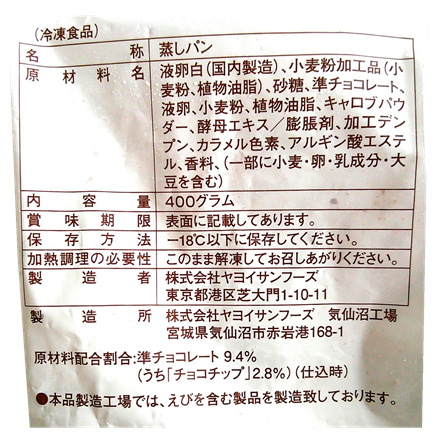 (冷凍食品)
名称 蒸しパン
原材料名 液卵白(国内製造)、小麦粉加工品(小
麦粉、植物油脂)、砂糖、準チョコレート、
液卵、小麦粉、植物油脂、キャロブパウ
ダー、酵母エキス/膨脹剤、加工デン
プン、カラメル色素、アルギン酸エステ
ル、香料、(一部に小麦・卵・乳成分・大
豆を含む)
内容量 400グラム
賞味期限 表面に記載してあります。
保存方法 −18℃以下に保存してください。
加熱調理の必要性 このまま解凍してお召しあがりください。
製造者 株式会社ヤヨイサンフーズ
東京都港区芝大門1-10-11
製造所 株式会社ヤヨイサンフーズ 気仙沼工場
宮城県気仙沼市赤岩港168-1
原材料配合割合:準チョコレート 9.4%
(うち「チョコチップ」2.8%)(仕込時)
●本品製造工場では、えびを含む製品を製造しております。